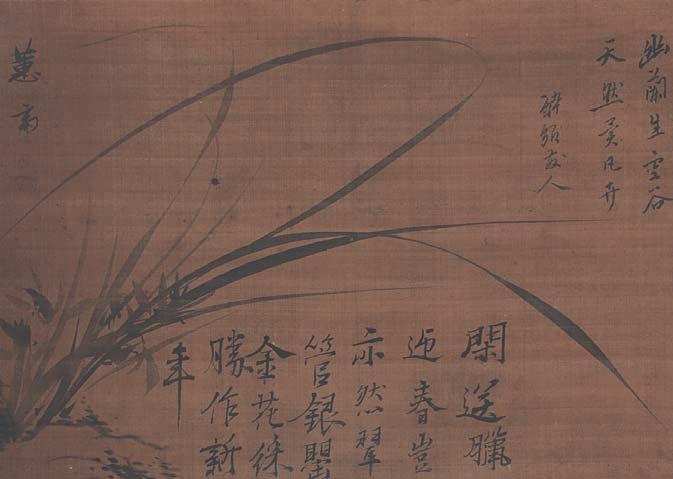 幽蘭生空谷
天然異凡卉
友人
閑送臘
迎春豈
亦然翠
管銀罌
金花綵
勝作新
年
蕙